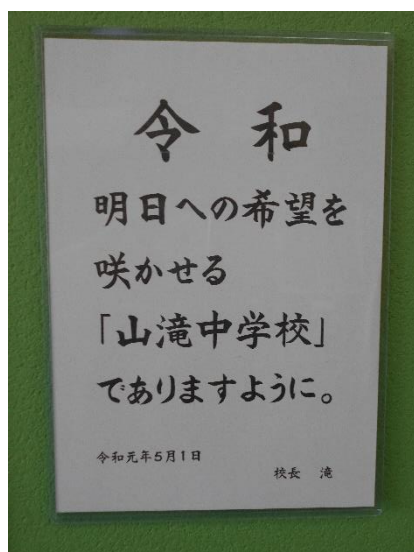 令 和
明日への希望を
咲かせる
「山滝中学校」
でありますように。
令和元年5月1日
校長 滝